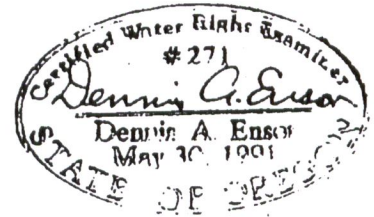 Certified Water Right Examiner
# 271
Dennis A. Ensor
Dennis A. Ensor
May 30, 1991
STATE OF OREGON